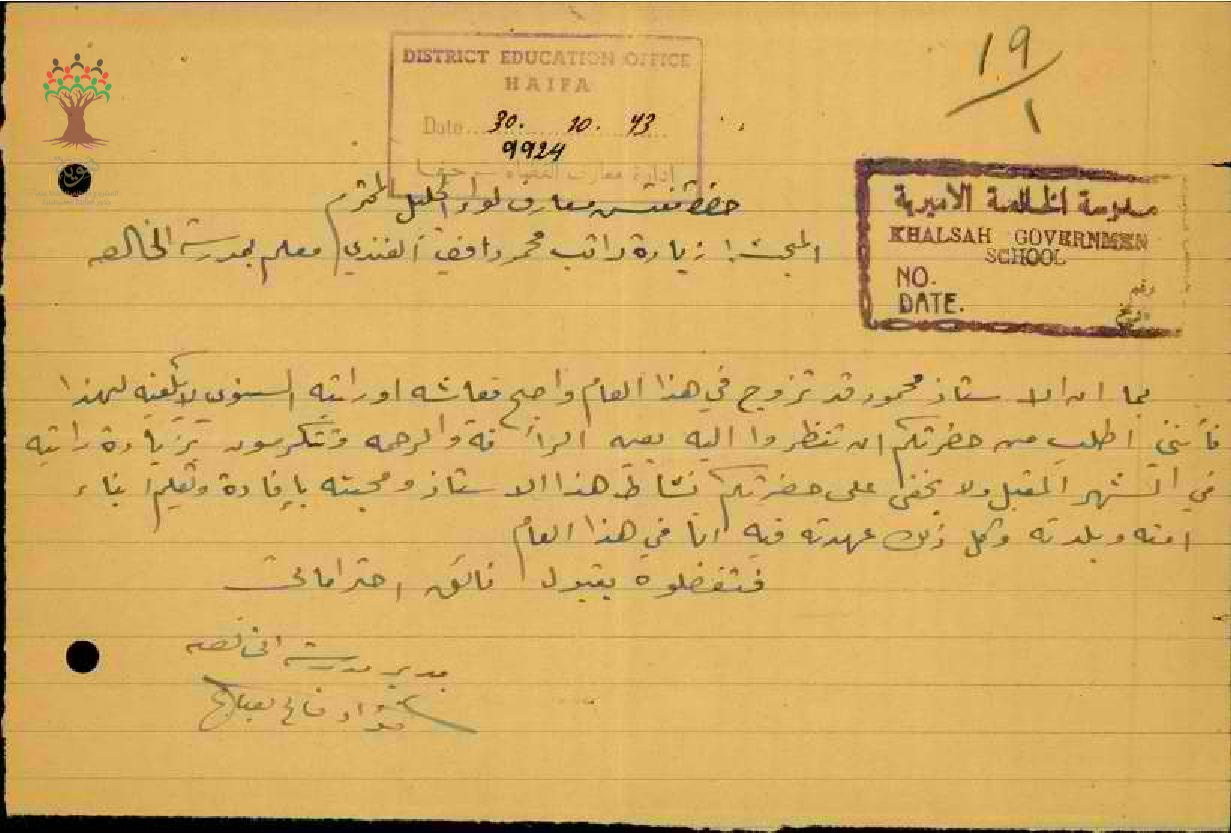 ١٩/١
DISTRICT EDUCATION OFFICE
HAIFA
Date 30. 10. 43
9924
إدارة معارف القضاء - حيفا
حضرة مفتش معارف لواء الجليل المحترم
مدرسة الخالصة الاميرية
KHALSAH GOVERNMEN
SCHOOL
NO. رقم
DATE. تاريخ
المبحث: زيادة راتب محمود افندي معلم بمدرسة الخالصه
بما ان الاستاذ محمود قد تزوج في هذا العام واصبح معاشه او راتبه السنوي لا يكفيه لهذا
فأنني اطلب من حضرتكم ان تنظروا اليه بعين الرأفة والرحمه وتتكرمون بزيادة راتبه
في الشهر المقبل ولا يخفى على حضرتكم نشاط هذا الاستاذ ومحبته بإفادة وتعليم ابناء
امته وبلدته وكل ذلك عهدته فيه انا في هذا العام
فتفضلوا بقبول فائق احتراماتي
مدير مدرسة الخالصه
فؤاد
هوية